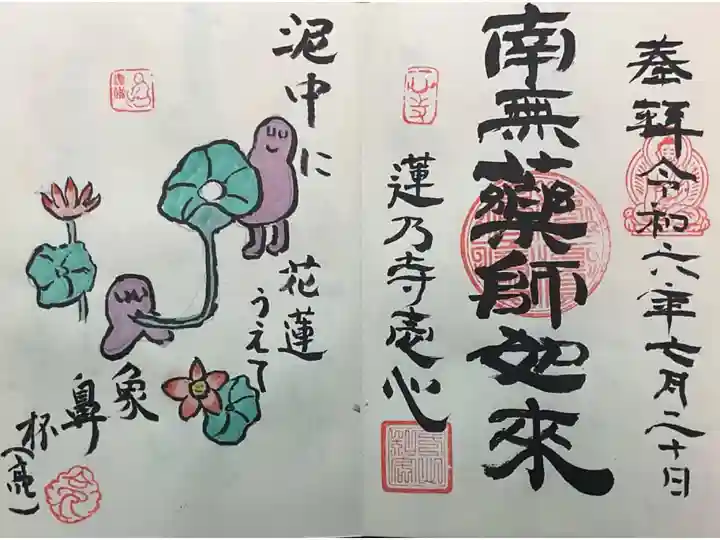 奉拝 令和六年七月二十日
南無薬師如來
蓮乃寺壱心
泥中に
花蓮
うえて
象
鼻
杯
(亮)